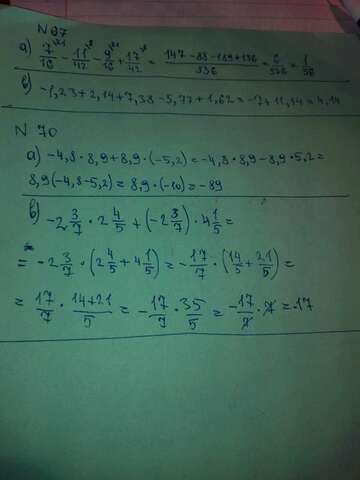 N 67
а) 7/16 - 11/42 - 9/16 + 17/42 = (147 - 88 - 189 + 136)/336 = 6/336 = 1/56
в) -1,23 + 2,14 + 7,38 - 5,77 + 1,62 = -7 + 11,14 = 4,14
N 70
а) -4,8 · 8,9 + 8,9 · (-5,2) = -4,8 · 8,9 - 8,9 · 5,2 =
8,9(-4,8 - 5,2) = 8,9 · (-10) = -89
в) -2 3/7 · 2 4/5 + (-2 3/7) · 4 1/5 =
= -2 3/7 · (2 4/5 + 4 1/5) = -17/7 · (14/5 + 21/5) =
= 17/7 · (14+21)/5 = -17/7 · 35/5 = -17/7 · 7 = -17